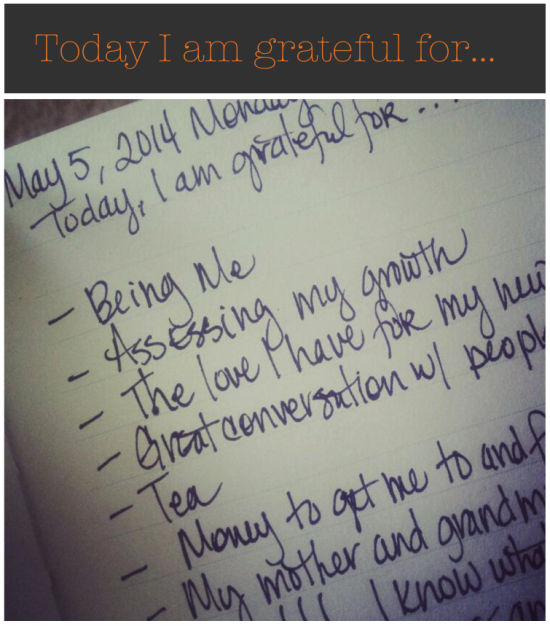 Today I am grateful for...
May 5, 2014 Monday
Today, I am grateful for ...
- Being Me
- Assessing my growth
- The love I have for my
- Great conversation w/
- Tea
- Money to get me to and
- My mother and
- I know